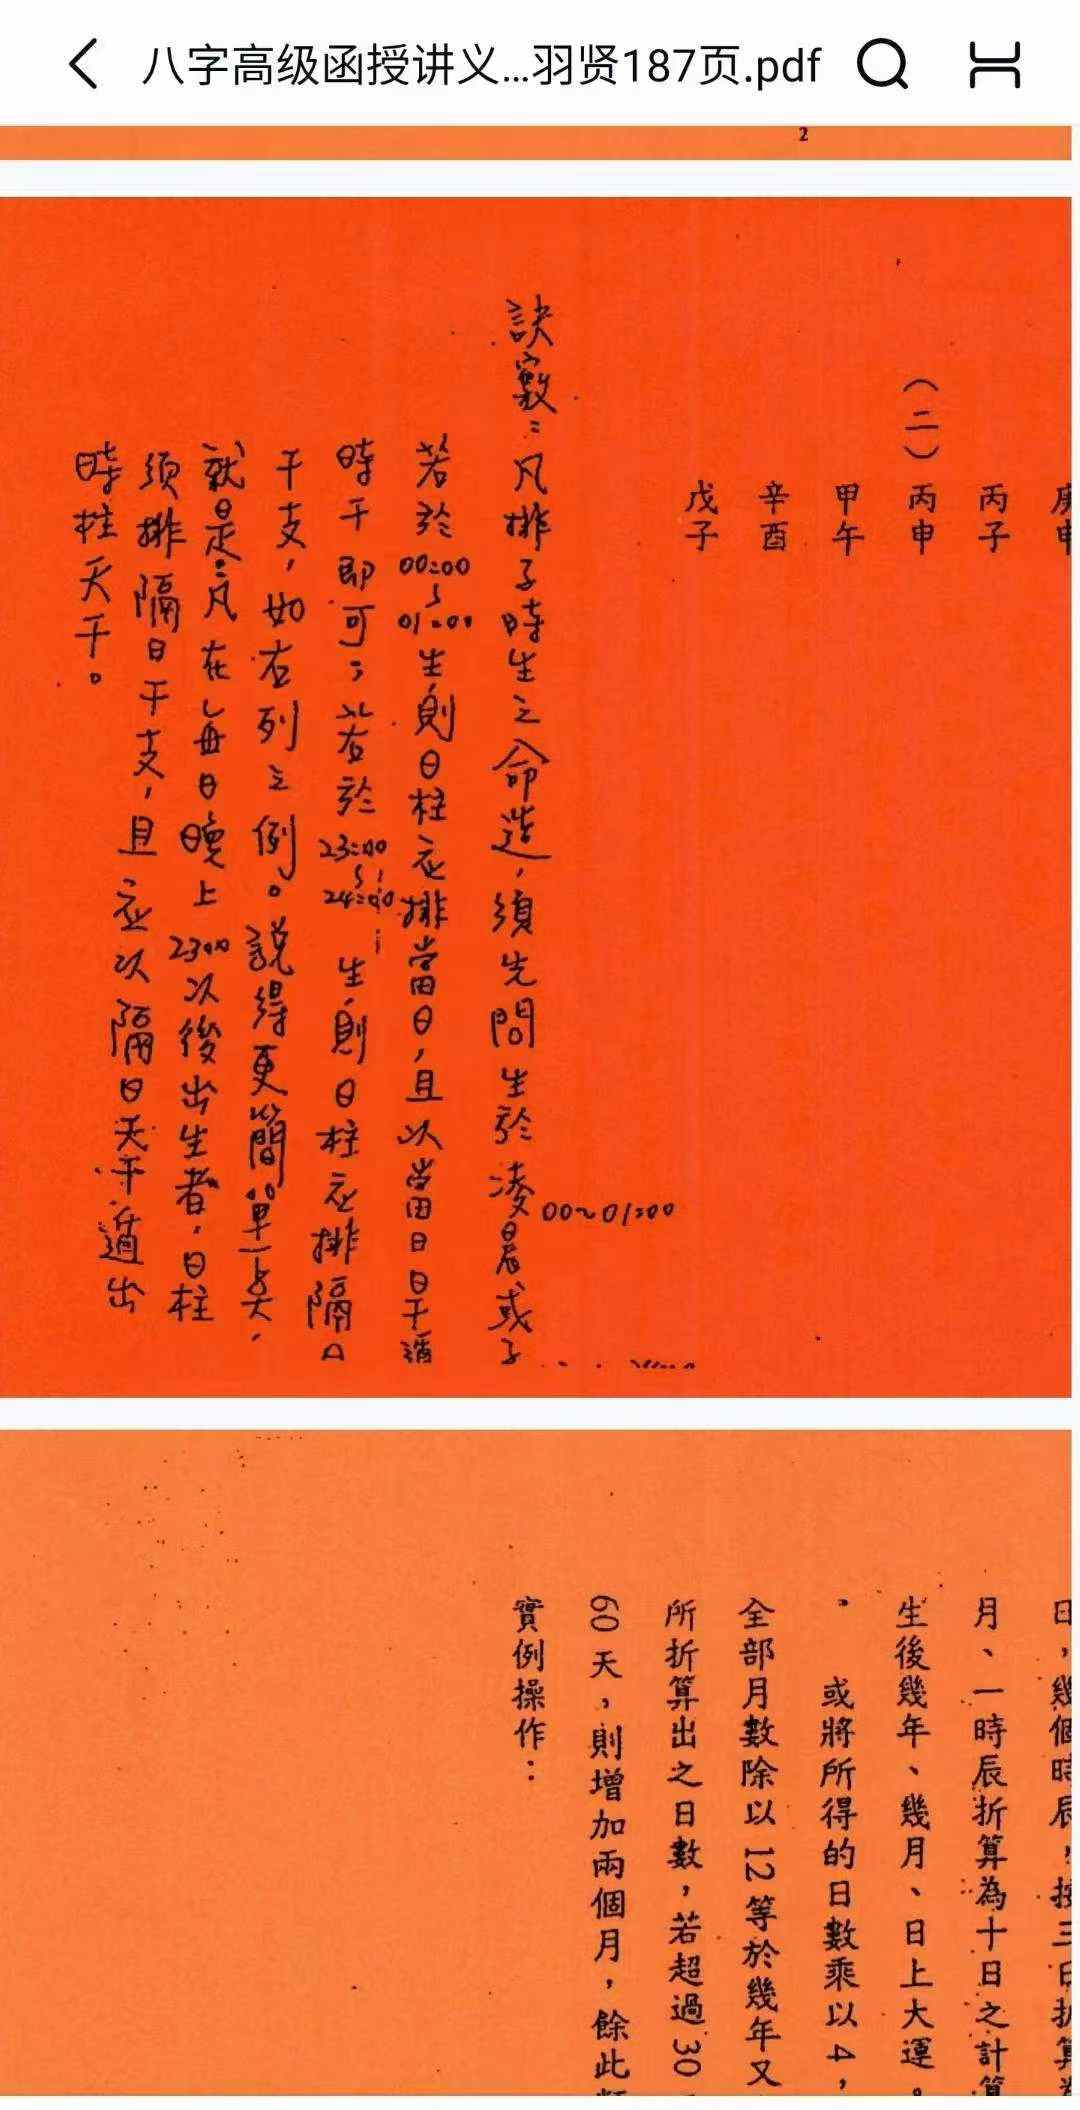 八字高级函授讲义...羽贤187页.pdf
2
丙子
（二）丙申
甲午
辛酉
戊子
訣竅：凡排子時生之命造，須先問生於凌晨或子
00~01:00
若於00:00~01:00生則日柱応排當日，且以當日日干遁
時干即可；若於23:00~24:00生則日柱応排隔日
干支，如右列之例。說得更簡單一点，
就是：凡在每日晚上23:00以後出生者，日柱
須排隔日干支，且応以隔日天干遁出
時柱天干。
日，幾個時辰，按三日折算
月、一時辰折算為十日之計算
生後幾年、幾月、日上大運。
，或將所得的日數乘以4，
全部月數除以12等於幾年又
所折算出之日數，若超過30
60天，則增加兩個月，餘此
實例操作：